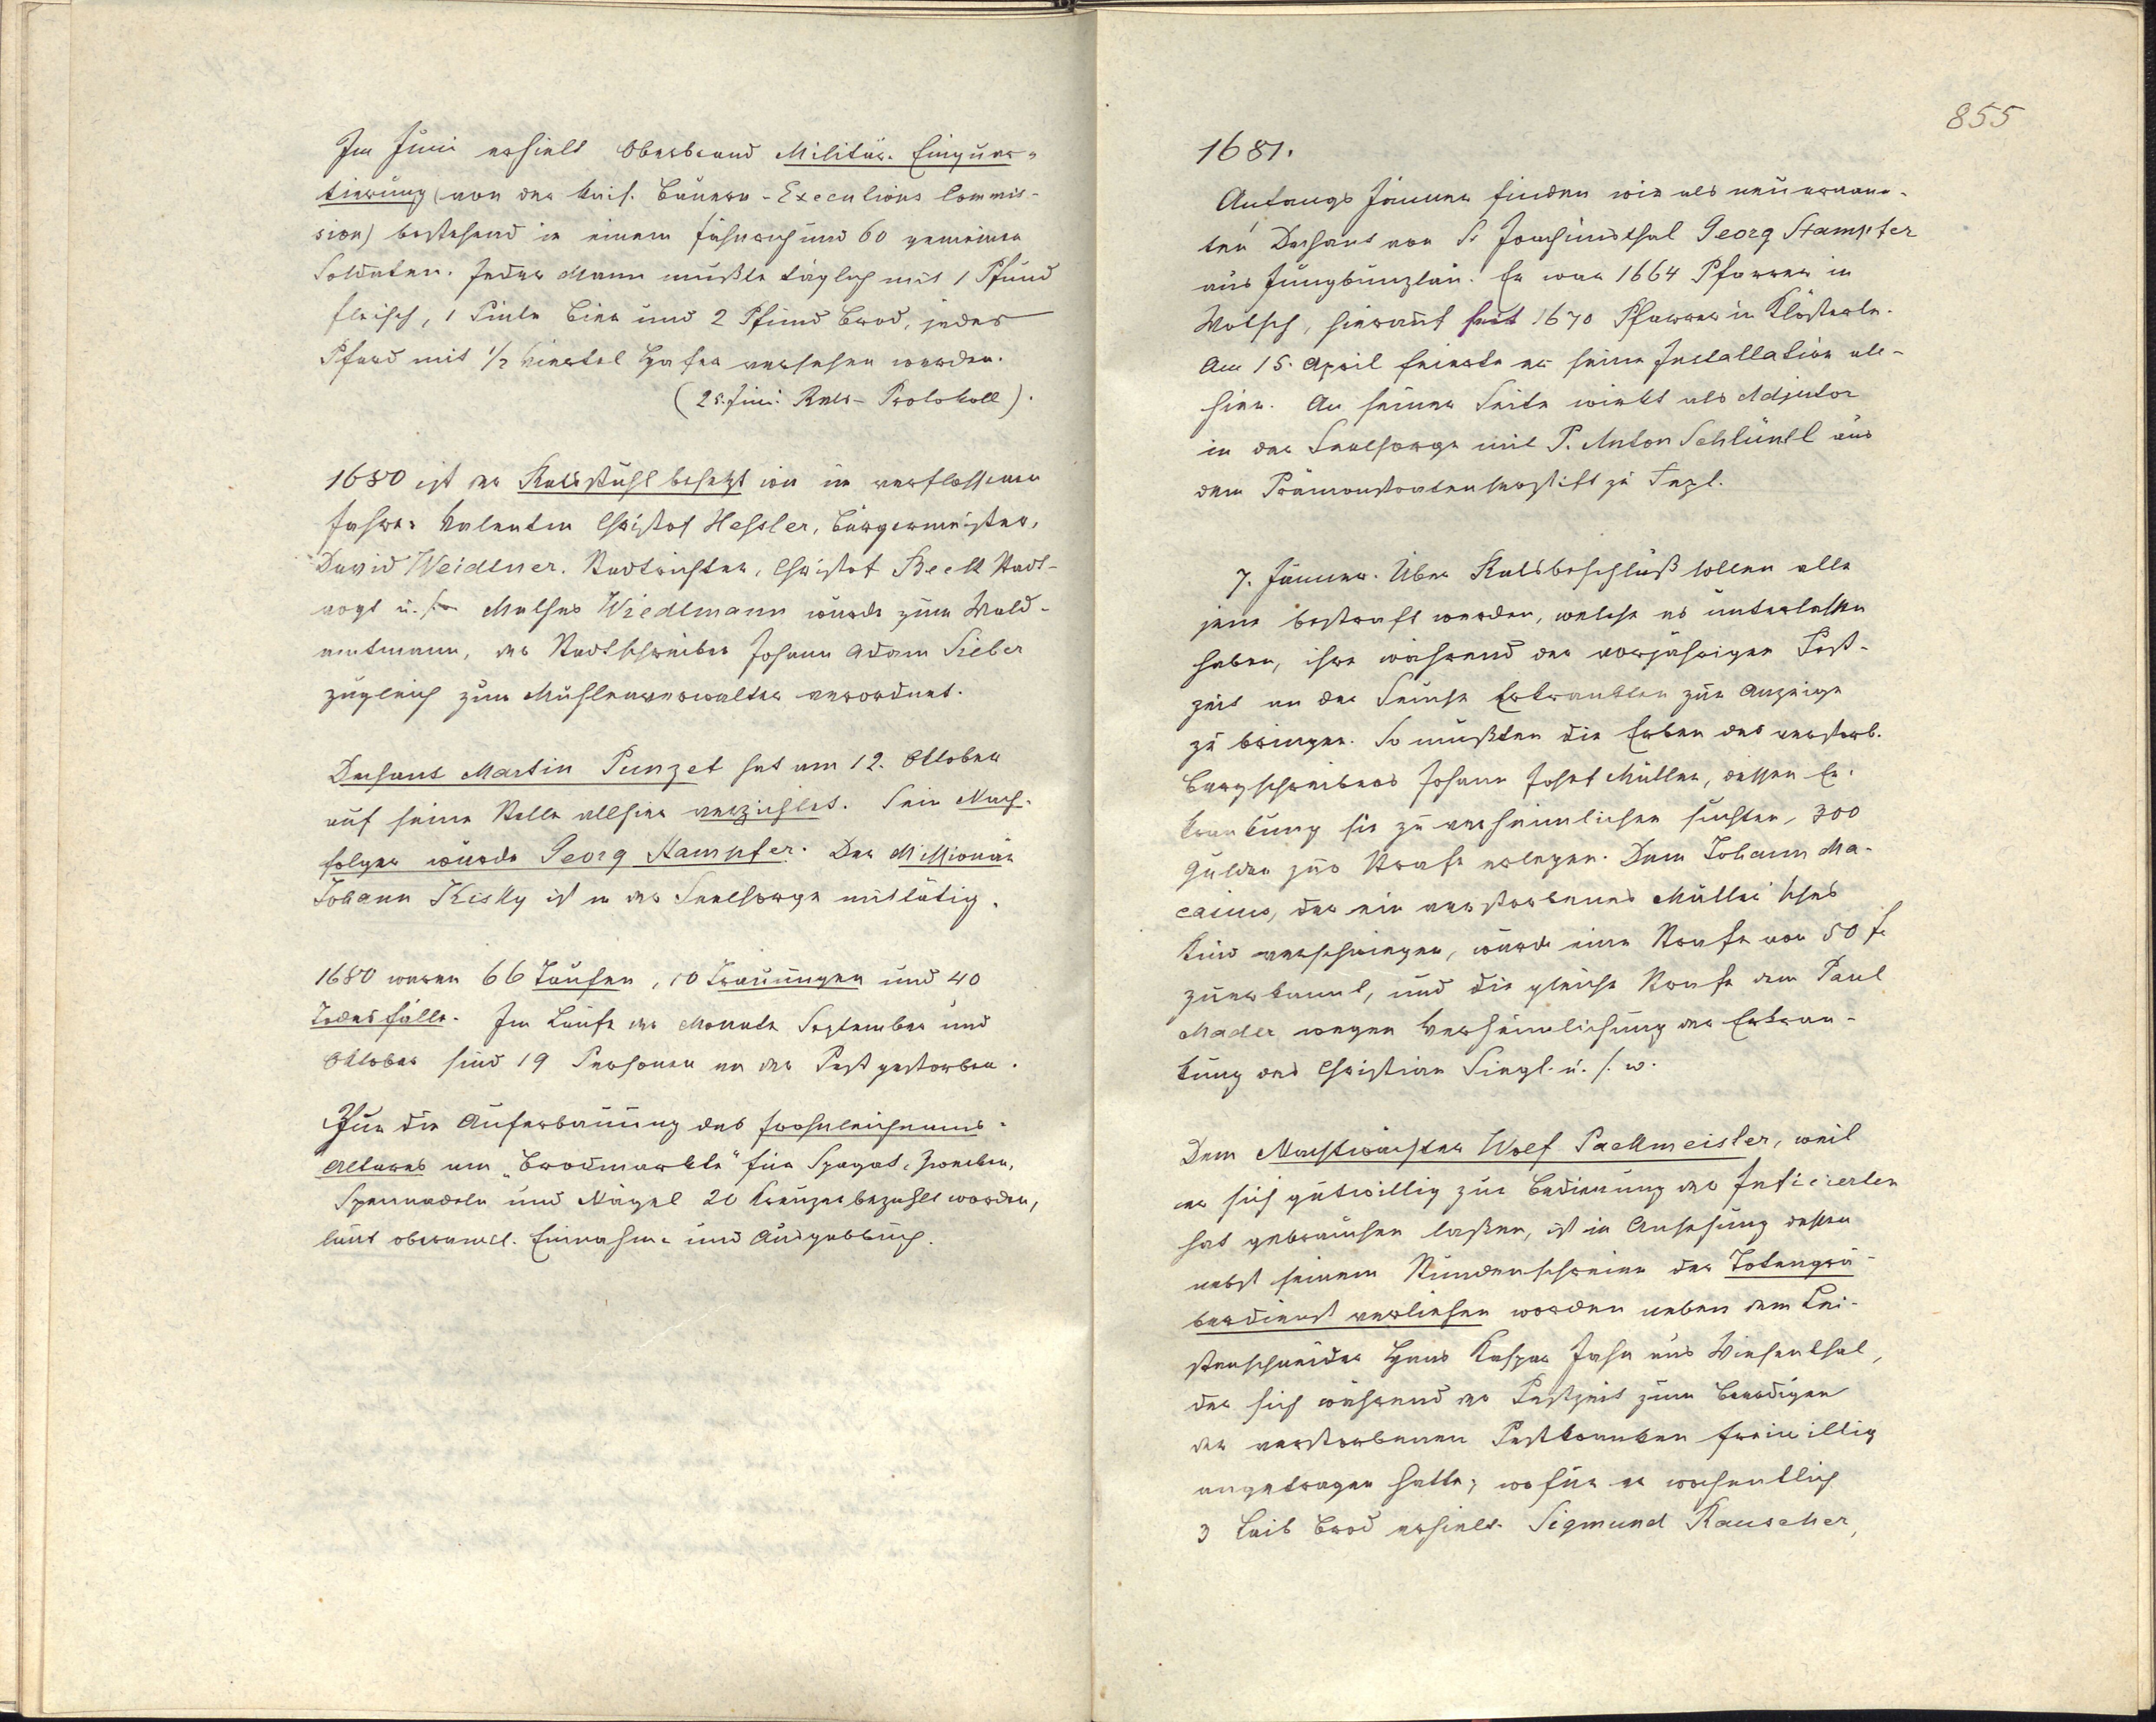 Im Juni erhielt Oberbrand Militär-Einquar-
tierung (von der kais. Bauern-Executions Commis-
sion) bestehend in einem Fähnrich und 60 gemeinen
Soldaten. Jeder Mann mußte täglich mit 1 Pfund
Fleisch, 1 Pinte Bier und 2 Pfund Brod, jedes
Pferd mit 1/2 Viertel Hafer versehen werden.
(25. Juni. Rats-Protokoll).
1680 ist der Ratsstuhl besetzt wie im verflossenen
Jahre: Valentin Christof Hessler, Bürgermeister,
David Weidlner. Stadtrichter, Christof Beck Stadt-
vogt u. Mathes Wiedlmann wurde zum Wald-
amtmann, der Stadtschreiber Johann Adam Sieber
zugleich zum Mühlenverwalter verordnet.
Dechant Martin Punzet hat am 12. Oktober
auf seine Stelle allhier verzichtet. Sein Nach-
folger wurde Georg Stampfer. Der Missionär
Johann Kisky ist in der Seelsorge mittätig.
1680 waren 66 Taufen, 10 Trauungen und 40
Todesfälle. Im Laufe der Monate September und
Oktober sind 19 Personen an der Pest gestorben.
Für die Auferbauung des Frohnleichnams-
Altares am „Brodmarkte" für Spagat, Zwecken,
Spennadeln und Nägel 20 Kreuzer bezahlt worden,
laut oberamtl. Einnahme und Ausgabbuch.
855
1681.
Anfangs Jänner finden wir als neuernann-
ten Dechant von St Joachimsthal Georg Stampfer
aus Jungbunzlau. Er war 1664 Pfarrer in
Wotsch, hierauf seit 1670 Pfarrer in Klösterle.
Am 15. April feierte er seine Installation all-
hier. An seiner Seite wirkt als Adjutor
in der Seelsorge mit P. Anton Schlüntl aus
dem Prämonstratenserstift zu Tepl.
7. Jänner. Über Ratsbeschluß sollen alle
jene bestraft werden, welche es unterlassen
haben, ihre während der vorjährigen Pest-
zeit an der Seuche Erkrankten zur Anzeige
zu bringen. So mußten die Erben des verstorb.
Bergschreibers Johann Josef Müller, dessen Er-
krankung sie zu verheimlichen suchten, 300
Gulden zur Strafe erlegen. Dem Johann Ma-
caius, der ein verstorbenes Müller'sches
Kind verschwiegen, wurde eine Strafe von 50 f.
zuerkannt, und die gleiche Strafe dem Paul
Mader wegen Verheimlichung der Erkran-
kung des Christian Siegl. u. s. w.
Dem Nachtwächter Wolf Packmeister, weil
er sich gutwillig zur Bedienung der Inficierten
hat gebrauchen laßen, ist in Ansehung dessen
nebst seinem Stundenschreien der Totengrä-
berdienst verliehen worden neben dem Lei-
stenschneider Hans Kaspar Jahn aus Wiesenthal,
der sich während der Pestzeit zum Beerdigen
der verstorbenen Pestkranken freiwillig
angetragen hatte; wofür er wochentlich
3 Laib Brod erhielt. Sigmund Rauscher,